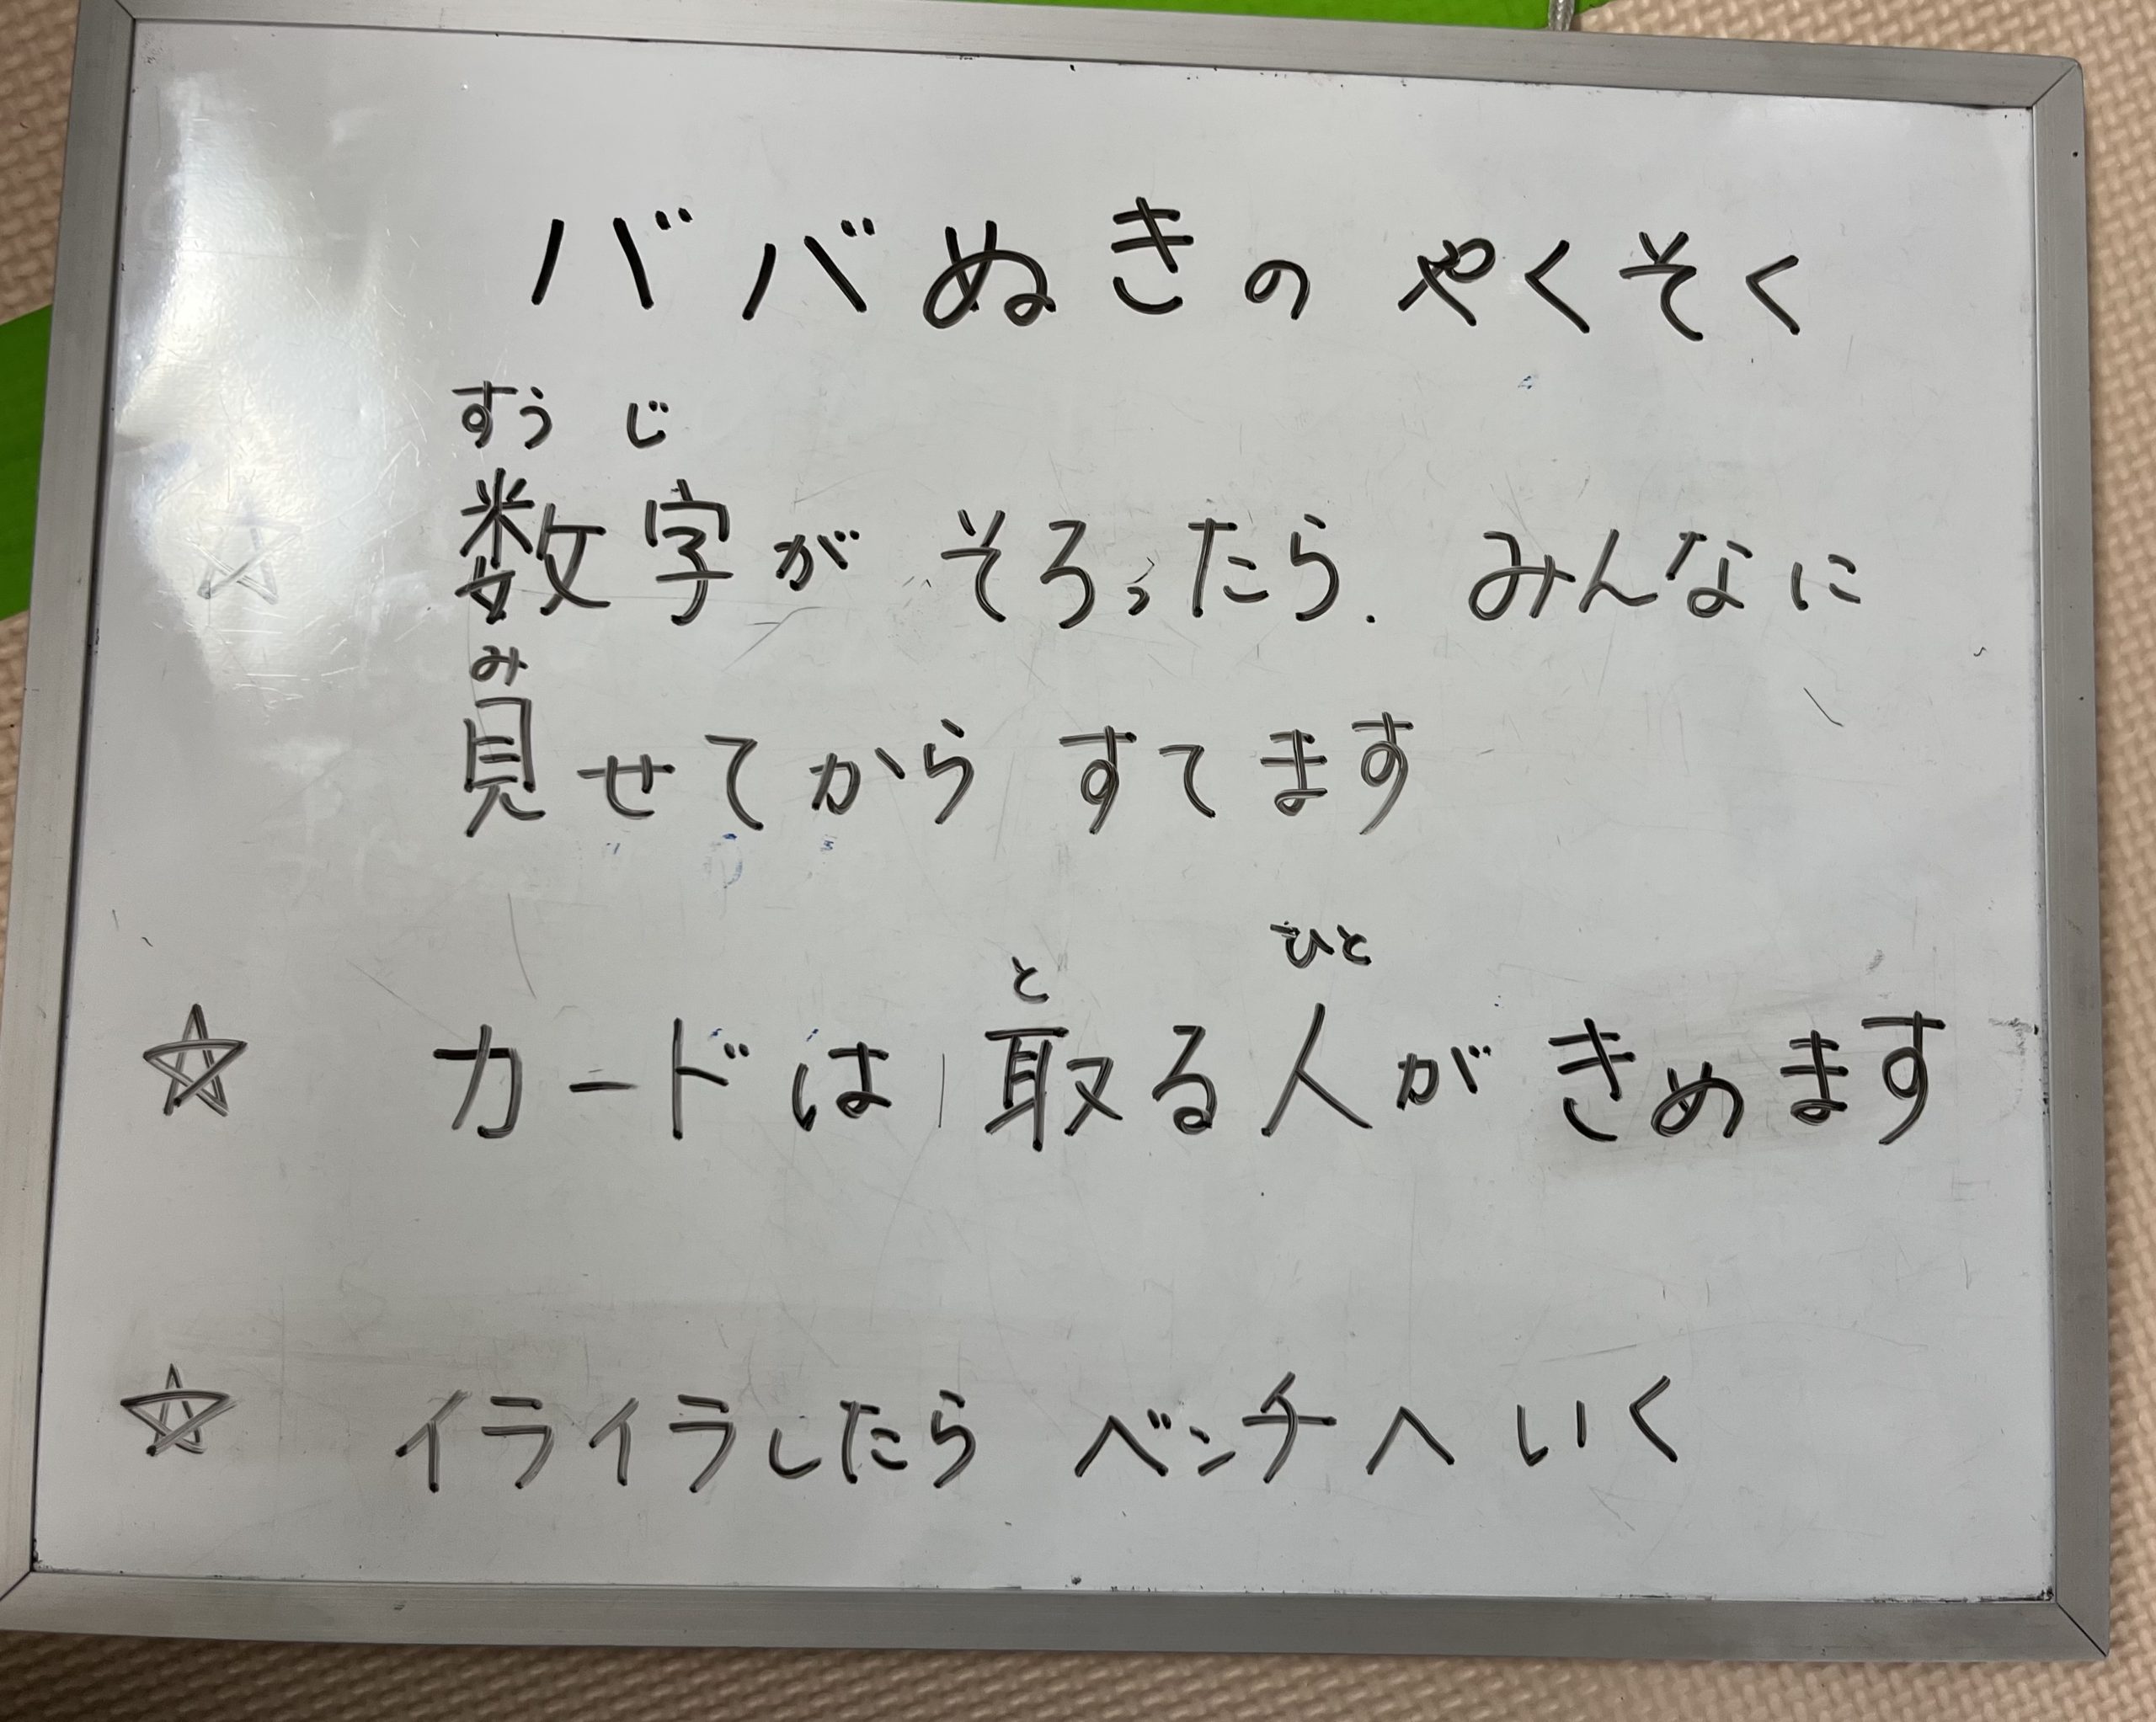 ババぬきの やくそく
すうじ
☆ 数字が そろったら. みんなに
み
見せてから すてます
と ひと
☆ カードは 取る人が きめます
☆ イライラしたら ベンチへ いく